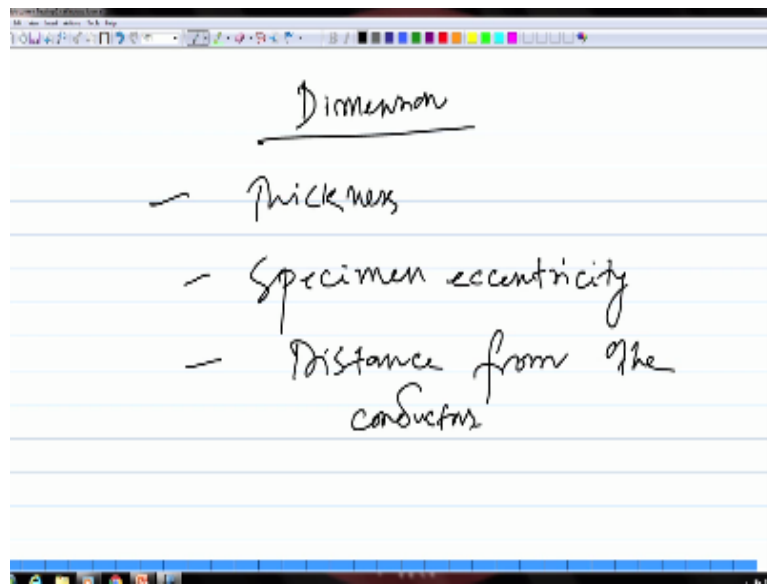 Dimension
- Thickness
- Specimen eccentricity
- Distance from the
conductors